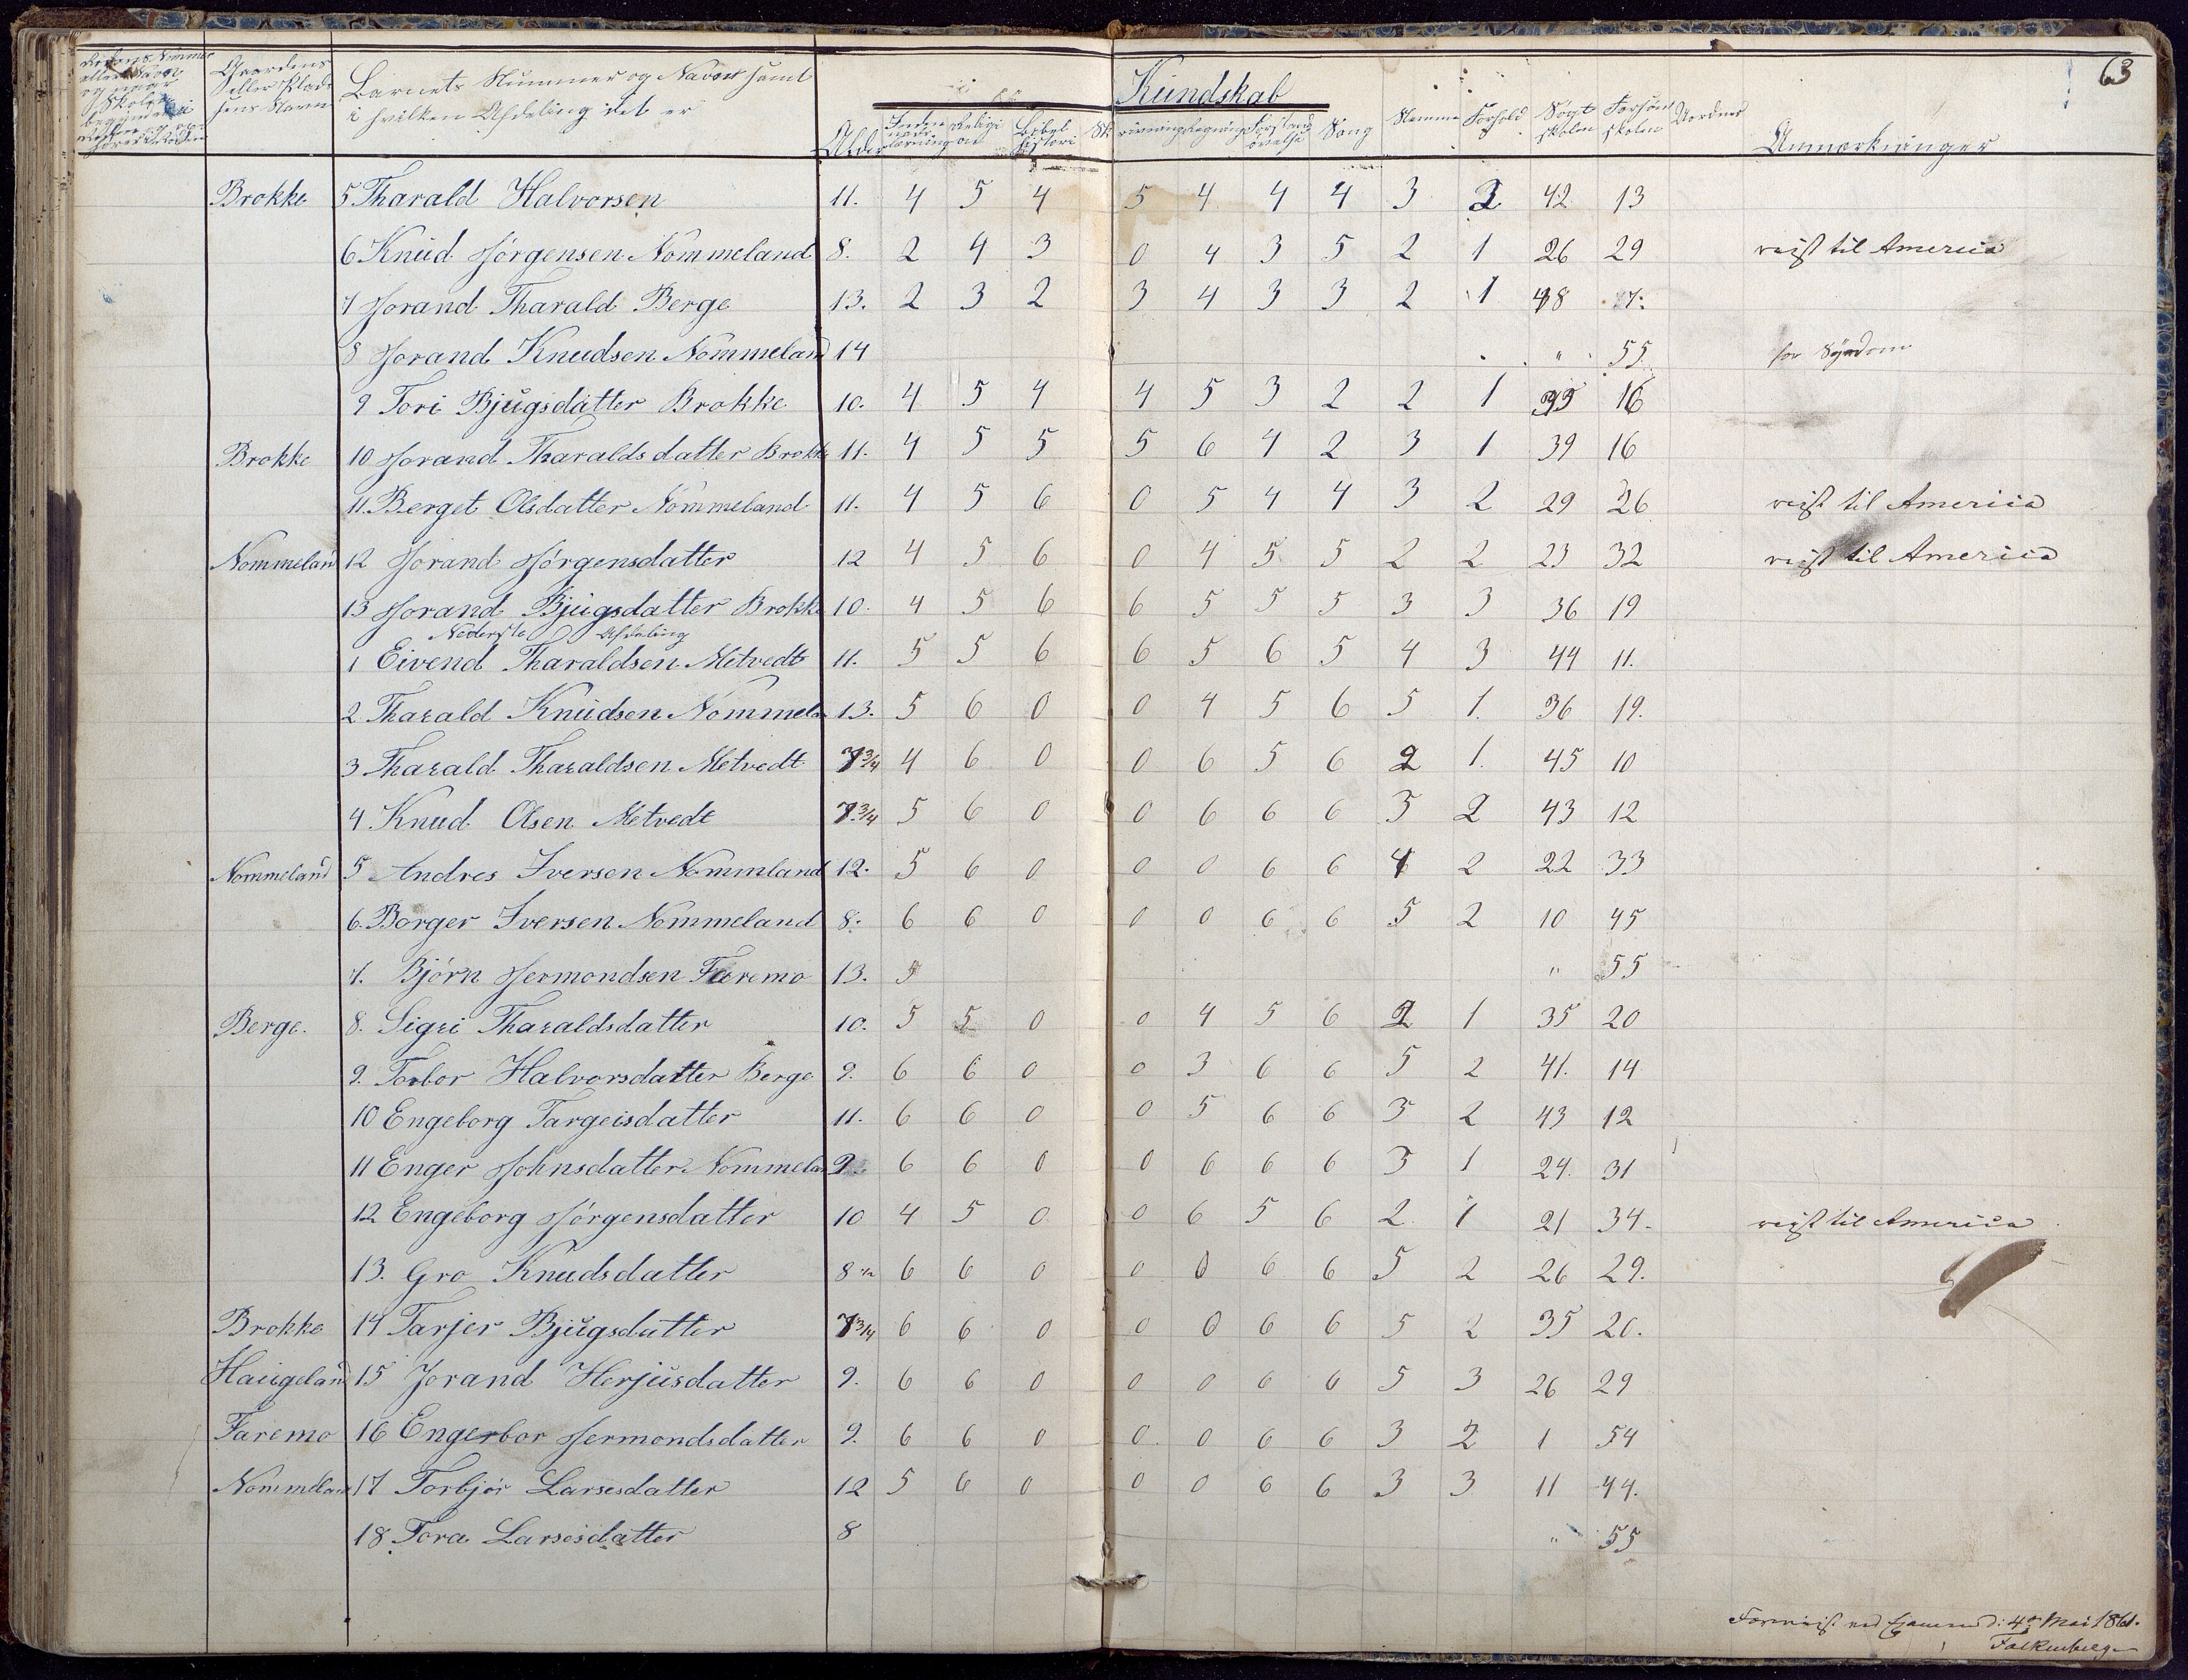 63
Gaardens eller Plads- sens Navn
Barnets Nummer og Navn samt i hvilken Afdeling det er
Alder
Religion
Bibel histori
Kundskab
Sang
Nemme
Forhold
Søgt skolen
Forsømt skolen
Uordner
Anmærkninger
Brokke 5 Tharald Halvorsen 11. 4 5 4 5 4 4 4 3 2 42 13
6 Knud Jörgensen Nommeland 8. 2 4 3 0 4 3 5 2 1 26 29 reist til America
7 Jorand Tharald Berge 13. 2 3 2 3 4 3 3 2 1 48 7.
8 Jorand Knudsen Nommeland 14 " 55 for Sygdom
9 Tori Bjugsdatter Brokke 10. 4 5 4 4 5 3 2 2 1 39 16
Brokke 10 Jorand Tharaldsdatter Brokke 11. 4 5 5 5 6 4 2 3 1 39 16
11. Berget Olsdatter Nommeland 11. 4 5 6 0 5 4 4 3 2 29 26 reist til America
Nommeland 12 Jorand Jörgensdatter 12 4 5 6 0 4 5 5 2 2 23 32 reist til America
13 Jorand Bjugsdatter Brokke 10. 4 5 6 6 5 5 5 3 3 36 19
Nederste Afdeling
1 Eivend Tharaldsen Metvedt 11. 5 5 6 6 5 6 5 4 3 44 11.
2 Tharald Knudsen Nommela 13. 5 6 0 0 4 5 6 5 1. 36 19.
3 Tharald Tharaldsen Metvedt 7 3/4 4 6 0 0 6 5 6 2 1. 45 10
4 Knud Olsen Metvedt 7 3/4 5 6 0 0 6 6 6 3 2 43 12
Nommeland 5 Andres Iversen Nommland 12. 5 6 0 0 0 6 6 4 2 22 33
6. Borger Iversen Nommeland 8. 6 6 0 0 0 6 6 5 2 10 45
7. Björn Jermondsen Faremo 13. 5 " 55
Berge. 8. Sigri Tharaldsdatter 10. 5 5 0 0 4 5 6 2 1 35 20
9. Torbor Halvorsdatter Berge 9. 6 6 0 0 3 6 6 5 2 41. 14
10 Engeborg Targeisdatter 11. 6 6 0 0 5 6 6 3 2 43 12
11 Enger Johnsdatter Nommela 9 6 6 0 0 6 6 6 3 1 24. 31
12 Engeborg Jörgensdatter 10 4 5 0 0 6 5 6 2 1 21 34. reist til America
13. Gro Knudsdatter 8 1/2 6 6 0 0 0 6 6 5 2 26 29.
Brokke 14 Tarjer Bjugsdatter 7 3/4 6 6 0 0 0 6 6 5 2 35 20.
Haugeland 15 Jorand Herjusdatter 9. 6 6 0 0 0 6 6 5 3 26 29
Faremo 16 Engerbor Jermondsdatter 9. 6 6 0 0. 0 6 6 3 2 1 54
Nommeland 17 Torbjör Larsesdatter 12 5 6 0 0 0 6 6 3 3 11 44.
18 Tora Larsesdatter 8 " 55
Foreviist ved Examen d: 4de Mai 1861.
Falkenberg